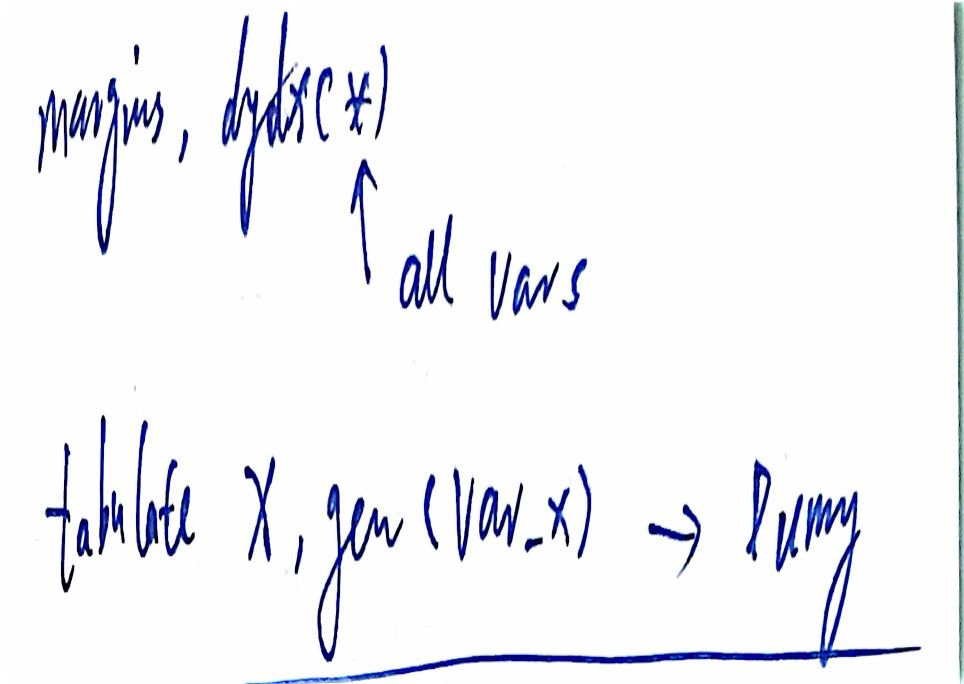 margins, dydx(*)
↑
all vars
tabulate X, gen(var_x) → Dumy